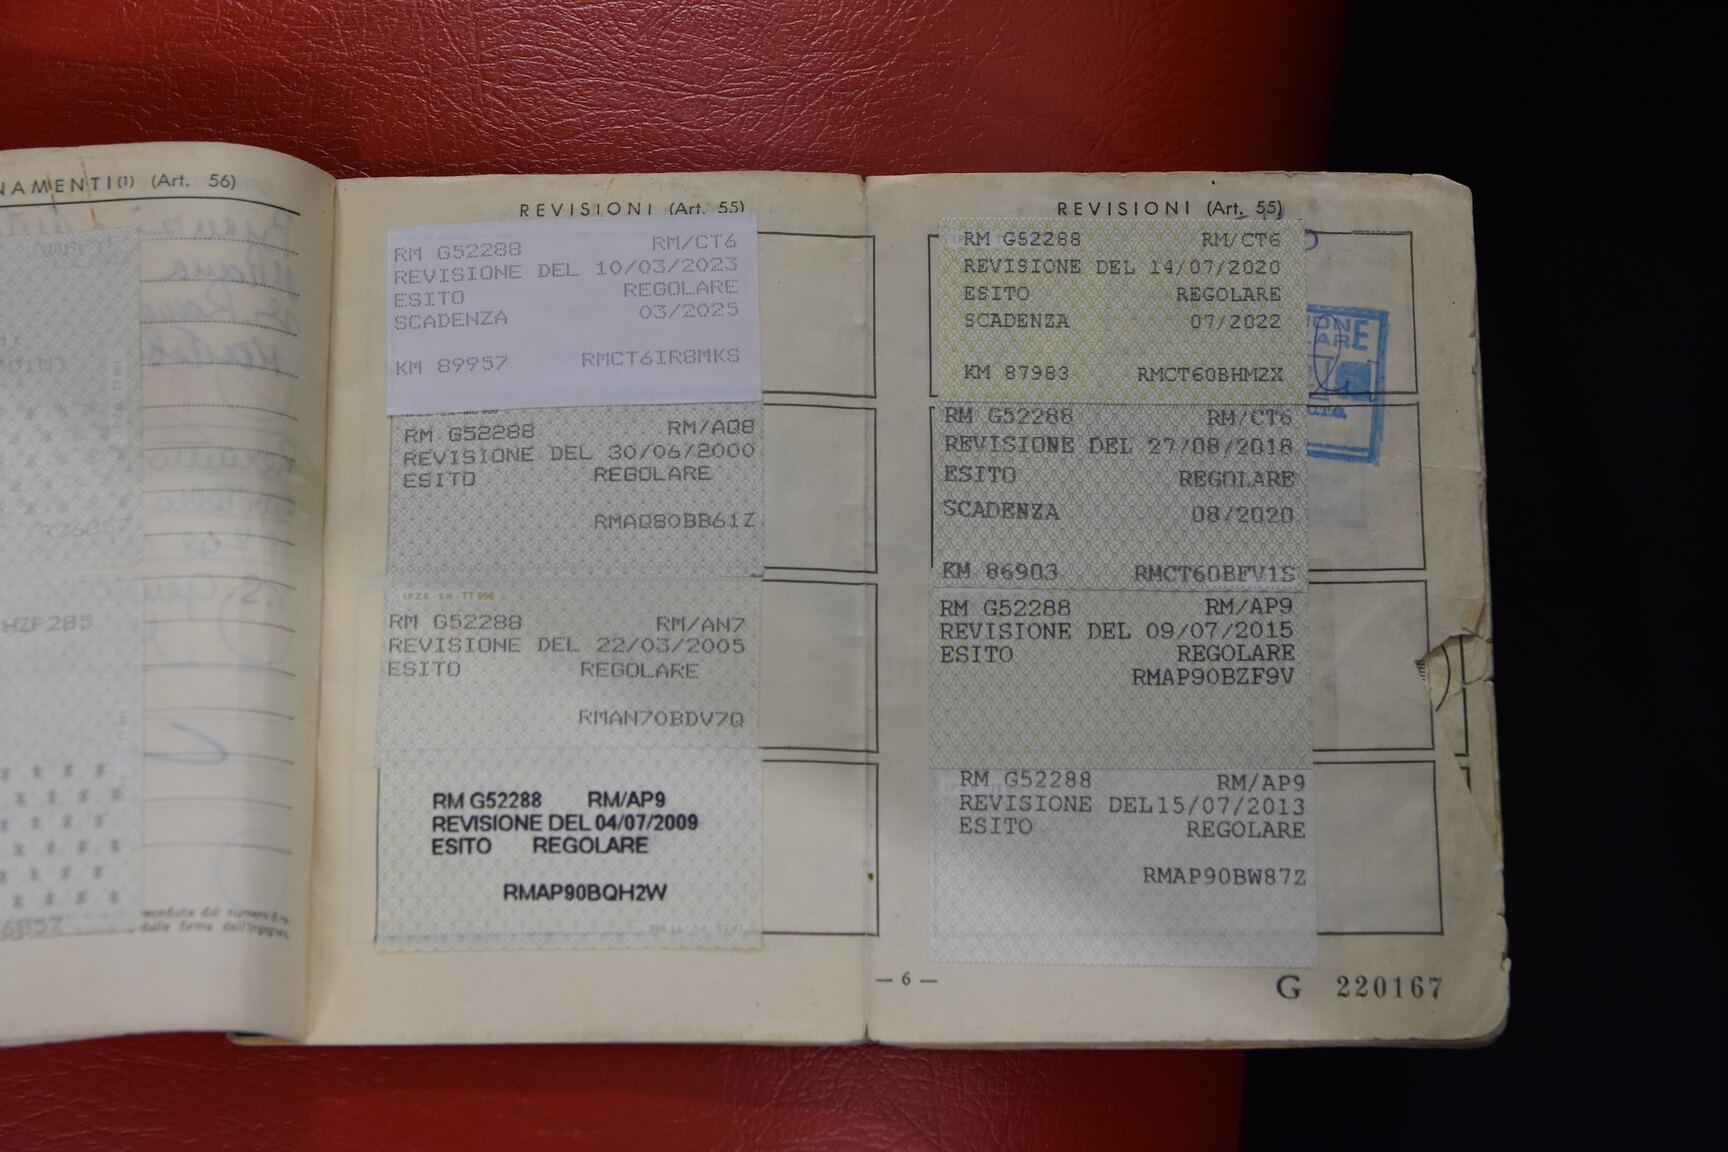 (Art. 56)
HZP285
REVISIONI (Art. 55)
RM G52288 RM/CT6
REVISIONE DEL 10/03/2023
ESITO REGOLARE
SCADENZA 03/2025
KM 89957 RMCT6IR8MKS
RM G52288 RM/AQ8
REVISIONE DEL 30/06/2000
ESITO REGOLARE
RMAQ80BB61Z
I.P.Z.S. - S.N. - TT 956
RM G52288 RM/AN7
REVISIONE DEL 22/03/2005
ESITO REGOLARE
RMAN70BDV7Q
RM G52288 RM/AP9
REVISIONE DEL 04/07/2009
ESITO REGOLARE
RMAP90BQH2W
REVISIONI (Art. 55)
RM G52288 RM/CT6
REVISIONE DEL 14/07/2020
ESITO REGOLARE
SCADENZA 07/2022
KM 87983 RMCT60BHM2X
RM G52288 RM/CT6
REVISIONE DEL 27/08/2018
ESITO REGOLARE
SCADENZA 08/2020
KM 86903 RMCT60BFV1S
RM G52288 RM/AP9
REVISIONE DEL 09/07/2015
ESITO REGOLARE
RMAP90BZF9V
RM G52288 RM/AP9
REVISIONE DEL15/07/2013
ESITO REGOLARE
RMAP90BW87Z
— 6 —
G 220167